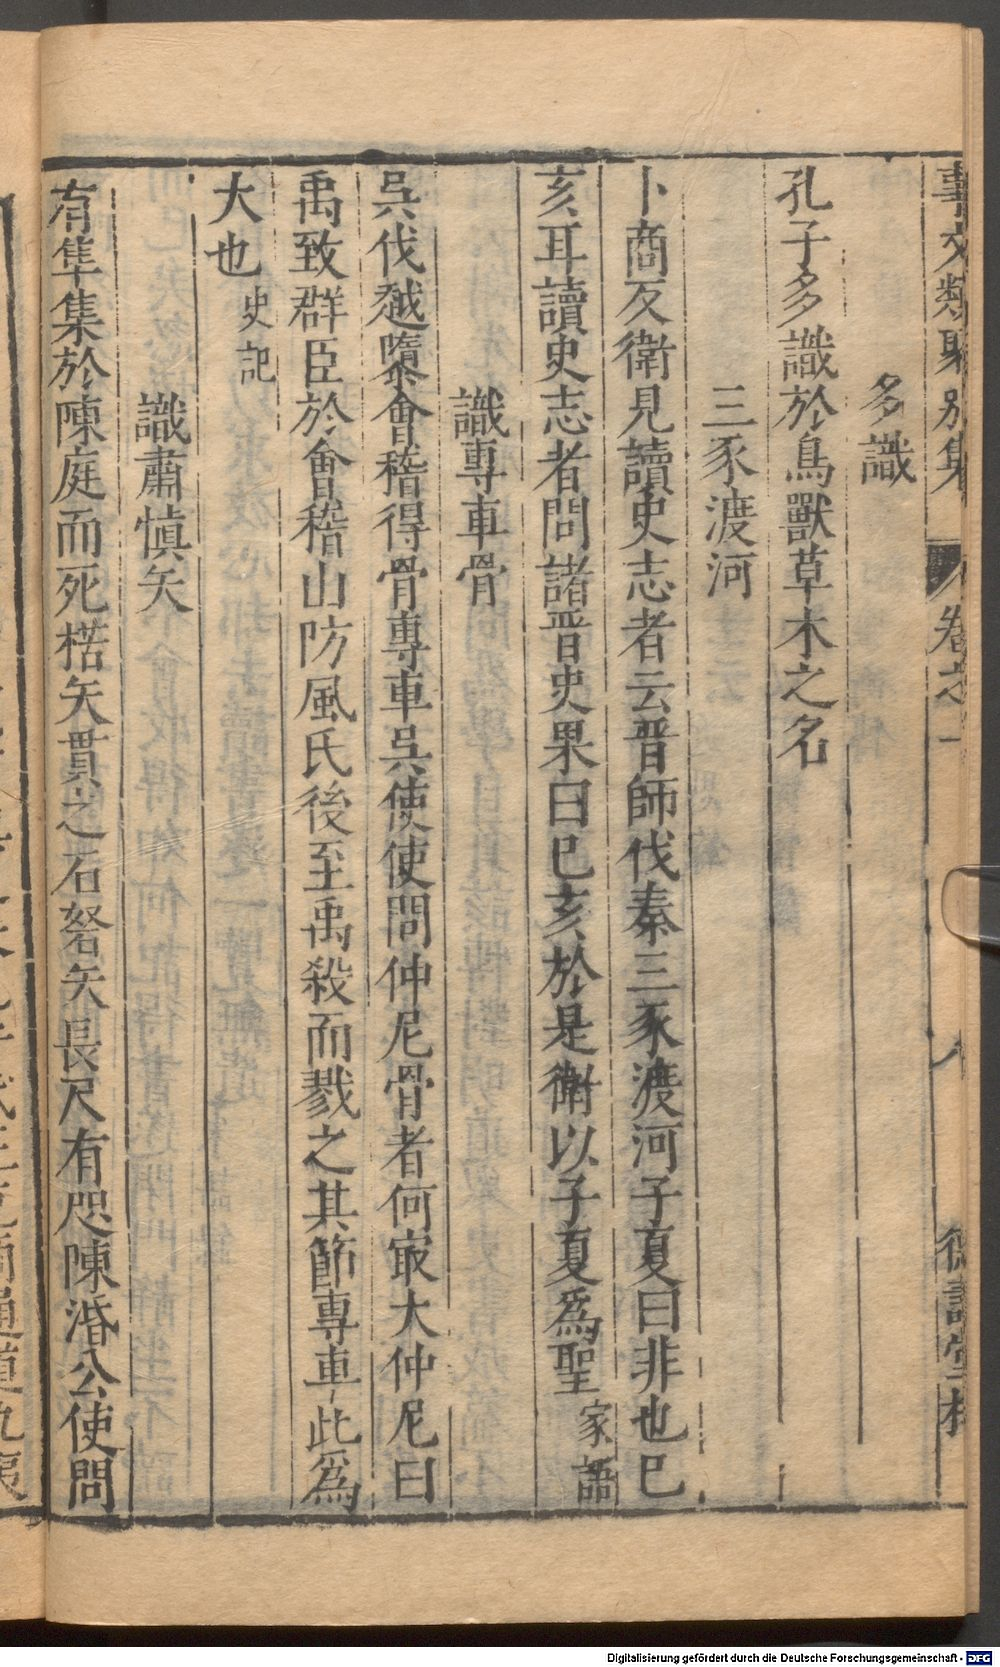 事文類聚別集 卷之一 八
多識
孔子多識於鳥獸草木之名
三豕渡河
卜商反衛見讀史志者云晉師伐秦三豕渡河子夏曰非也巳
亥耳讀史志者問諸晉史果曰巳亥於是衛以子夏爲聖家語
識專車骨
吳伐越隳會稽得骨專車吳使使問仲尼骨者何最大仲尼曰
禹致群臣於會稽山防風氏後至禹殺而戮之其節專車此爲
大也史記
識肅愼矢
有隼集於陳庭而死楛矢貫之石砮矢長尺有咫陳湣公使問
通道九夷
Digitalisierung gefördert durch die Deutsche Forschungsgemeinschaft - DFG